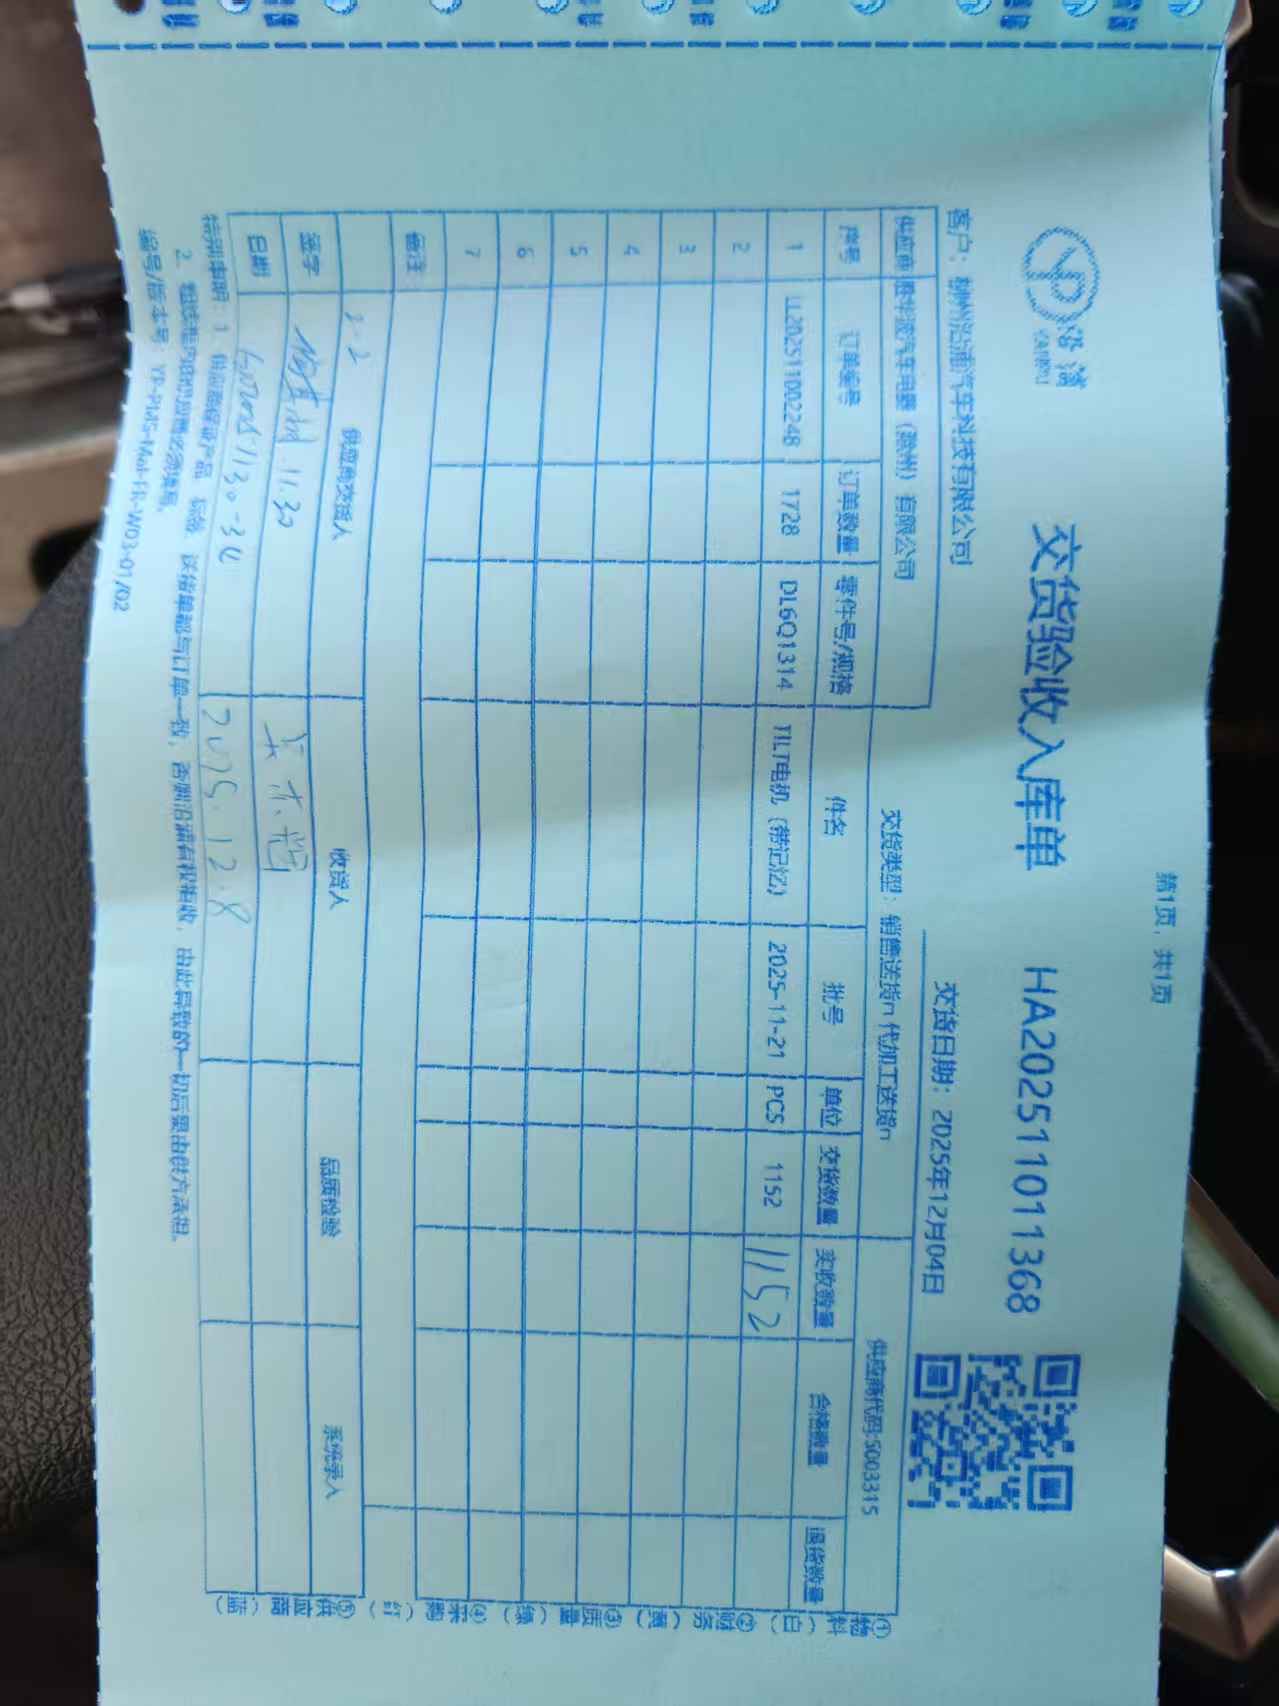 第1页，共1页
沿浦
YANPU
交货验收入库单 HA20251101011368
客户：柳州沿浦汽车科技有限公司 交货日期：2025年12月04日
供应商 胜华波汽车电器（滁州）有限公司 交货类型：销售送货n 代加工送货n 供应商代码:S003315
序号 订单编号 订单数量 零件号/规格 件名 批号 单位 交货数量 实收数量 合格数量 退货数量
1 LL202511002248 1728 DL6Q1314 TILT电机（带记忆） 2025-11-21 PCS 1152 1152
2
3
4
5
6
7
备注
2-2 供应商交货人 收货人 品质检验 系统录入
签字 11.30
日期 2025.12.8
特别申明：1、供应商保证产品、标签、送货单都与订单一致，否则沿浦有权拒收，由此导致的一切后果由供方承担。
2、粗线框内的供应商必须填写。
编号/版本号：YP-PMS-Mat-FR-W03-01/02
①物料（白）②财务（黄）③质量（绿）④采购（红）⑤供应商（蓝）